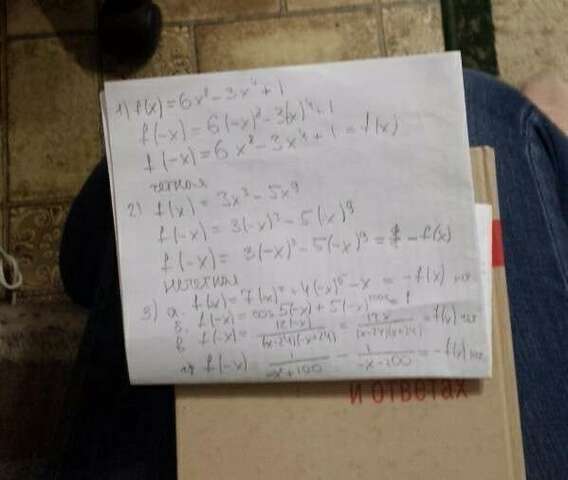 1) f(x) = 6x⁸ - 3x⁴ + 1
f(-x) = 6(-x)⁸ - 3(x)⁴ + 1
f(-x) = 6x⁸ - 3x⁴ + 1 = f(x)
четная
2) f(x) = 3x³ - 5x⁹
f(-x) = 3(-x)³ - 5(-x)⁹
f(-x) = 3(-x)³ - 5(-x)⁹ = - f(x)
нечетная
3) а. f(x) = 7(x)⁷ + 4(-x)⁵ - x = - f(x) неч.
б. f(-x) = cos 5(-x) + 5(-x)
в f(-x) = 12(-x) / (x-24)(x+24) = 12x / (x-24)(x+24) = f(x) чет
f(-x) 1 / -x+100 - 1 / -x-100 = - f(x) неч.
и ответах